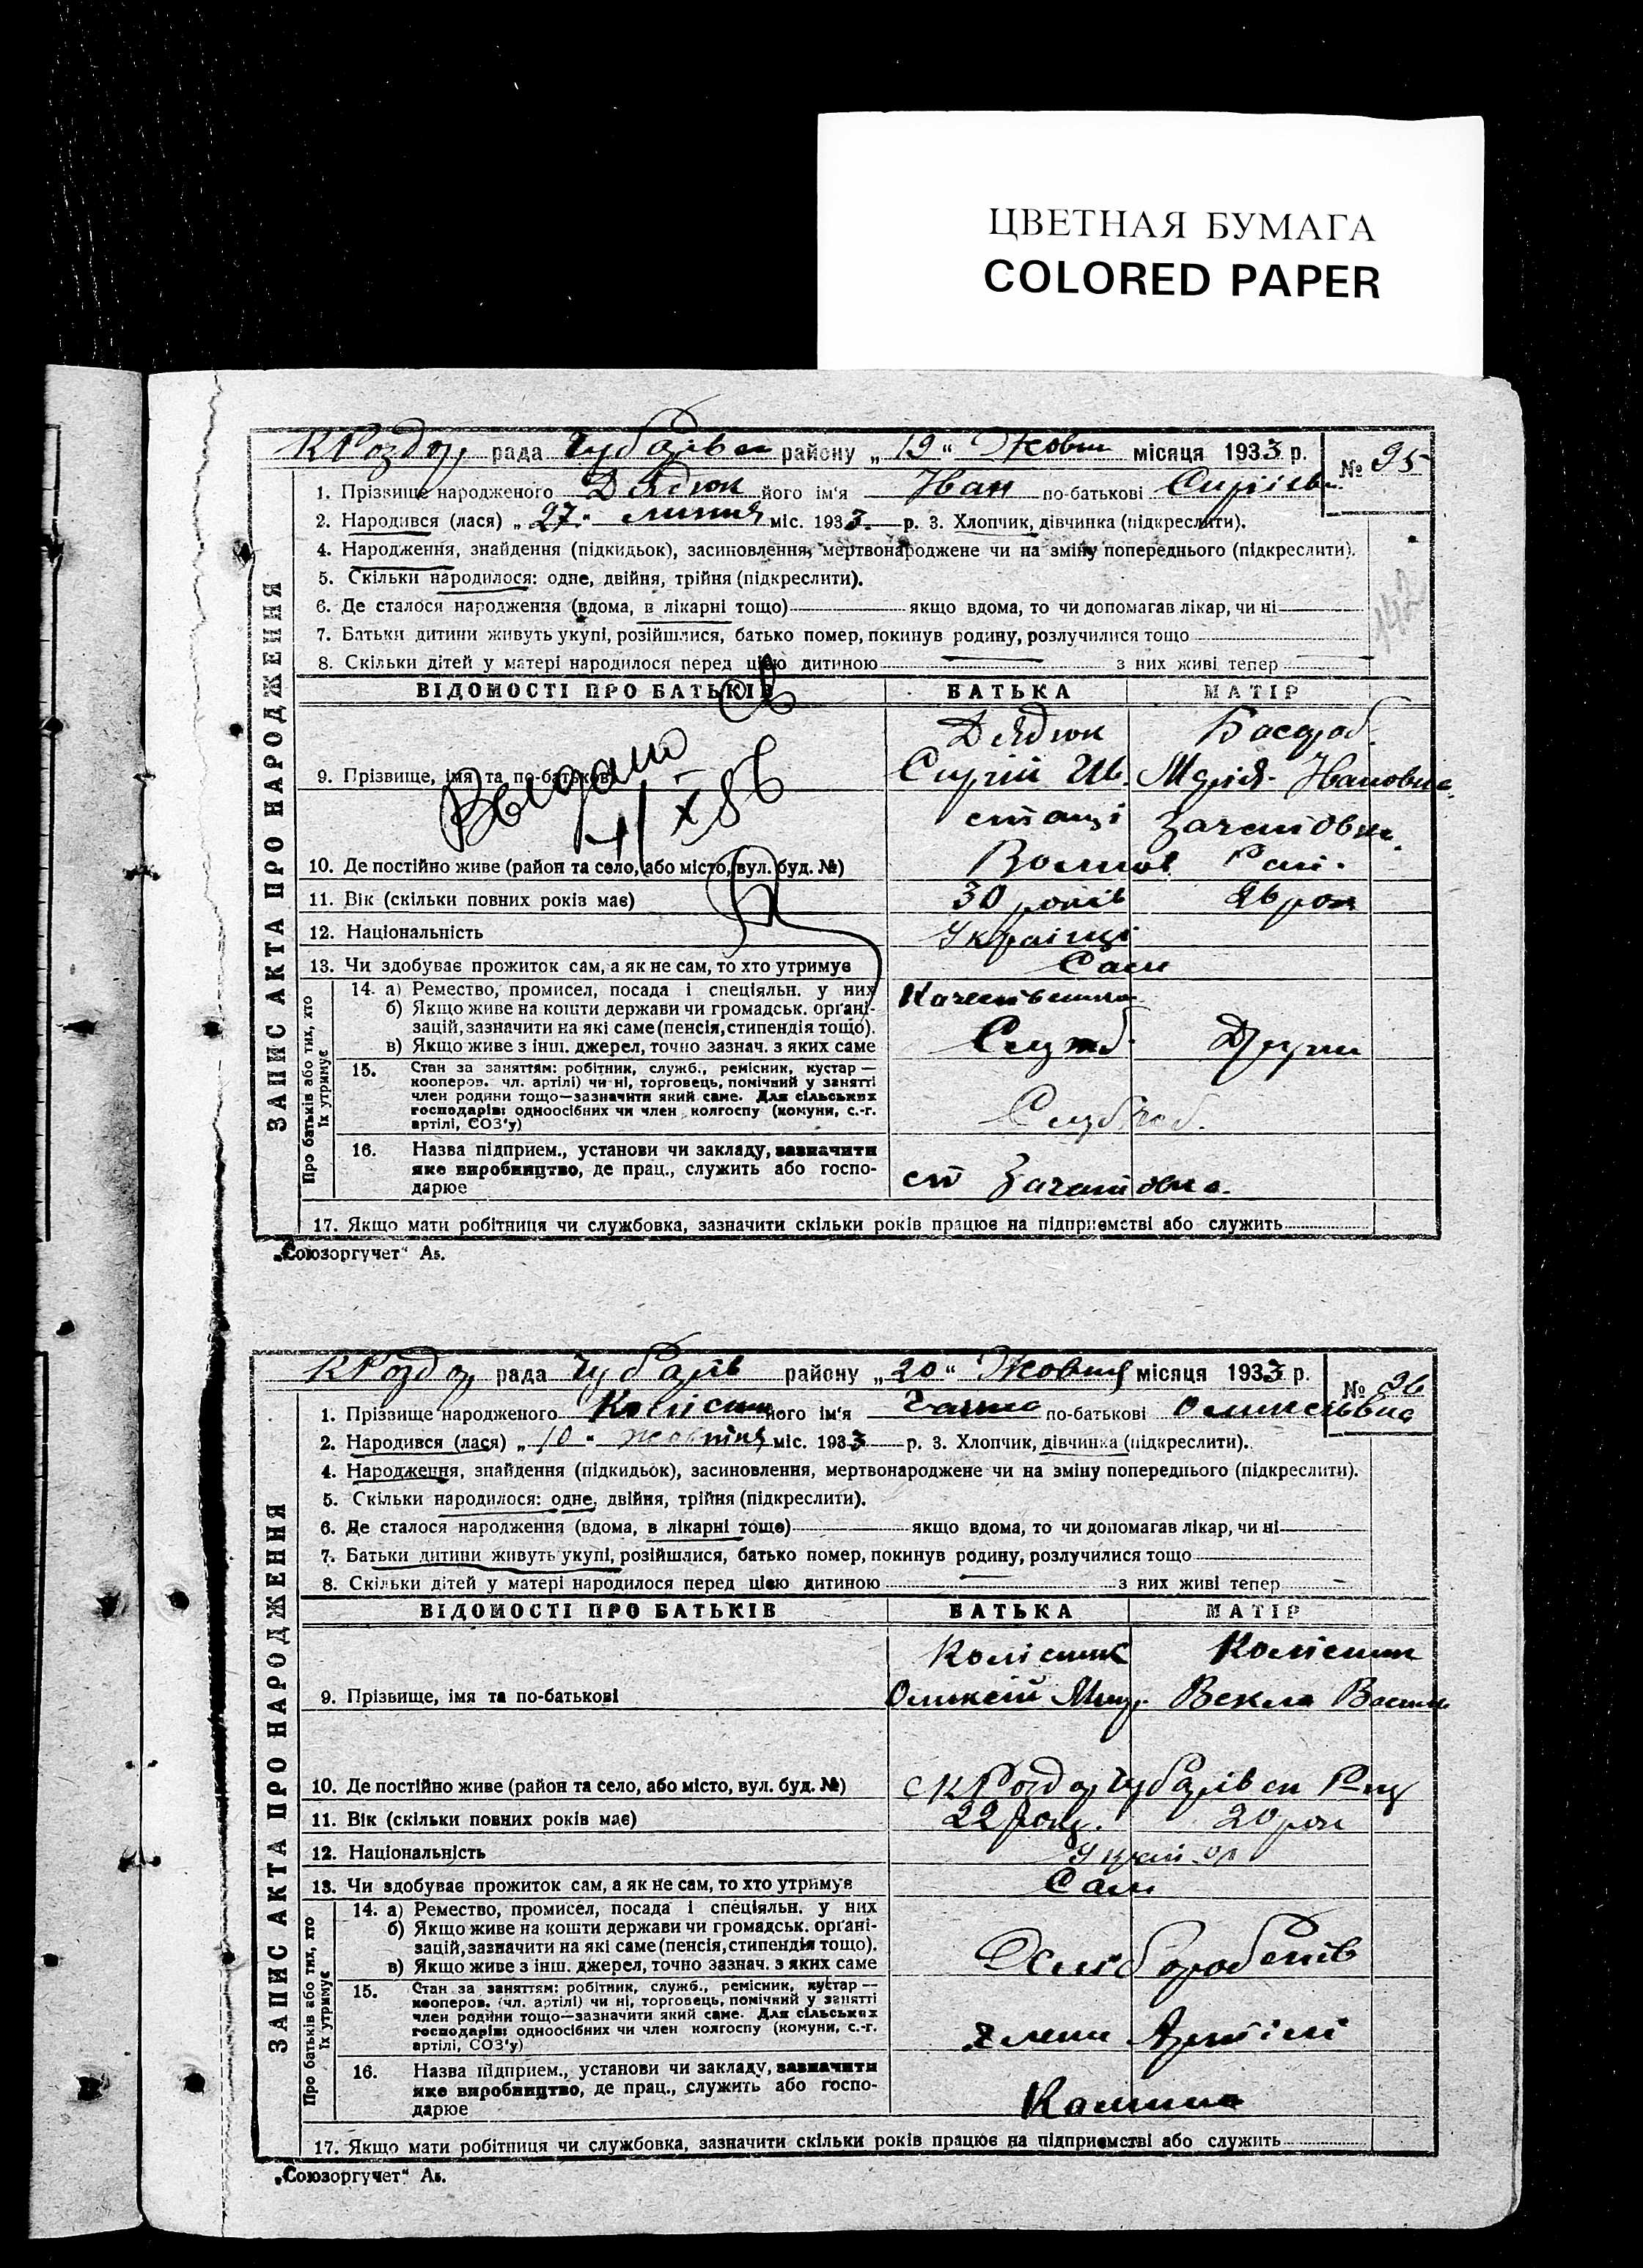 ЦВЕТНАЯ БУМАГА
COLORED PAPER
ЗАПИС АКТА ПРО НАРОДЖЕННЯ
рада району „19“ Жовтн місяця 1933 р. № 95
1. Прізвище народженого Дядюк його ім'я Іван по-батькові Сиргієв
2. Народився (лася) „27“ липня міс. 1933 р. 3. Хлопчик, дівчинка (підкреслити).
4. Народження, знайдення (підкидьок), засиновлення, мертвонароджене чи на зміну попереднього (підкреслити).
5. Скільки народилося: одне, двійня, трійня (підкреслити).
6. Де сталося народження (вдома, в лікарні тощо) якщо вдома, то чи допомагав лікар, чи ні
7. Батьки дитини живуть укупі, розійшлися, батько помер, покинув родину, розлучилися тощо
142
8. Скільки дітей у матері народилося перед цією дитиною з них живі тепер
ВІДОМОСТІ ПРО БАТЬКІВ БАТЬКА МАТІР
Дядюк
9. Прізвище, імя та по-батькові Сиргій Ив. Марія Івановна
станці Зачатовка
10. Де постійно живе (район та село, або місто, вул. буд. №)
11. Вік (скільки повних років має) 30 років 26 рок
12. Національність Українці
13. Чи здобуває прожиток сам, а як не сам, то хто утримує Сам
Про батьків або тих, хто їх утримує
14. а) Ремество, промисел, посада і спеціяльн. у них
б) Якщо живе на кошти держави чи громадськ. орґані-
зацій, зазначити на які саме (пенсія, стипендія тощо).
в) Якщо живе з інш. джерел, точно зазнач. з яких саме Служб.
15. Стан за заняттям: робітник, служб., ремісник, кустар —
кооперов. чл. артілі) чи ні, торговець, помічний у занятті
член родини тощо—зазначити який саме. Для сільських
господарів: одноосібних чи член колгоспу (комуни, с.-г.
артілі, СОЗ'у)
16. Назва підприєм., установи чи закладу, зазначити
яке виробництво, де прац., служить або госпо-
дарює ст Зачатовка.
17. Якщо мати робітниця чи службовка, зазначити скільки років працює на підприємстві або служить
„Союзоргучет“ А5.
ЗАПИС АКТА ПРО НАРОДЖЕННЯ
рада району „20“ Жовтня місяця 1933 р. № 96
1. Прізвище народженого Колісник його ім'я по-батькові Оликсіївна
2. Народився (лася) „10“ жовтня міс. 1933 р. 3. Хлопчик, дівчинка (підкреслити).
4. Народження, знайдення (підкидьок), засиновлення, мертвонароджене чи на зміну попереднього (підкреслити).
5. Скільки народилося: одне, двійня, трійня (підкреслити).
6. Де сталося народження (вдома, в лікарні тощо) якщо вдома, то чи допомагав лікар, чи ні
7. Батьки дитини живуть укупі, розійшлися, батько помер, покинув родину, розлучилися тощо
8. Скільки дітей у матері народилося перед цією дитиною з них живі тепер
ВІДОМОСТІ ПРО БАТЬКІВ БАТЬКА МАТІР
Колісник Колісник
9. Прізвище, імя та по-батькові Оликсій Векла
10. Де постійно живе (район та село, або місто, вул. буд. №)
11. Вік (скільки повних років має) 22 20 рок
12. Національність
13. Чи здобуває прожиток сам, а як не сам, то хто утримує Сам
Про батьків або тих, хто їх утримує
14. а) Ремество, промисел, посада і спеціяльн. у них
б) Якщо живе на кошти держави чи громадськ. орґані-
зацій, зазначити на які саме (пенсія, стипендія тощо).
в) Якщо живе з інш. джерел, точно зазнач. з яких саме
15. Стан за заняттям: робітник, служб., ремісник, кустар —
кооперов. (чл. артілі) чи ні, торговець, помічний у занятті
член родини тощо—зазначити який саме. Для сільських
господарів: одноосібних чи член колгоспу (комуни, с.-г.
артілі, СОЗ'у) члени Артілі
16. Назва підприєм., установи чи закладу, зазначити
яке виробництво, де прац., служить або госпо-
дарює
17. Якщо мати робітниця чи службовка, зазначити скільки років працює на підприємстві або служить
„Союзоргучет“ А5.